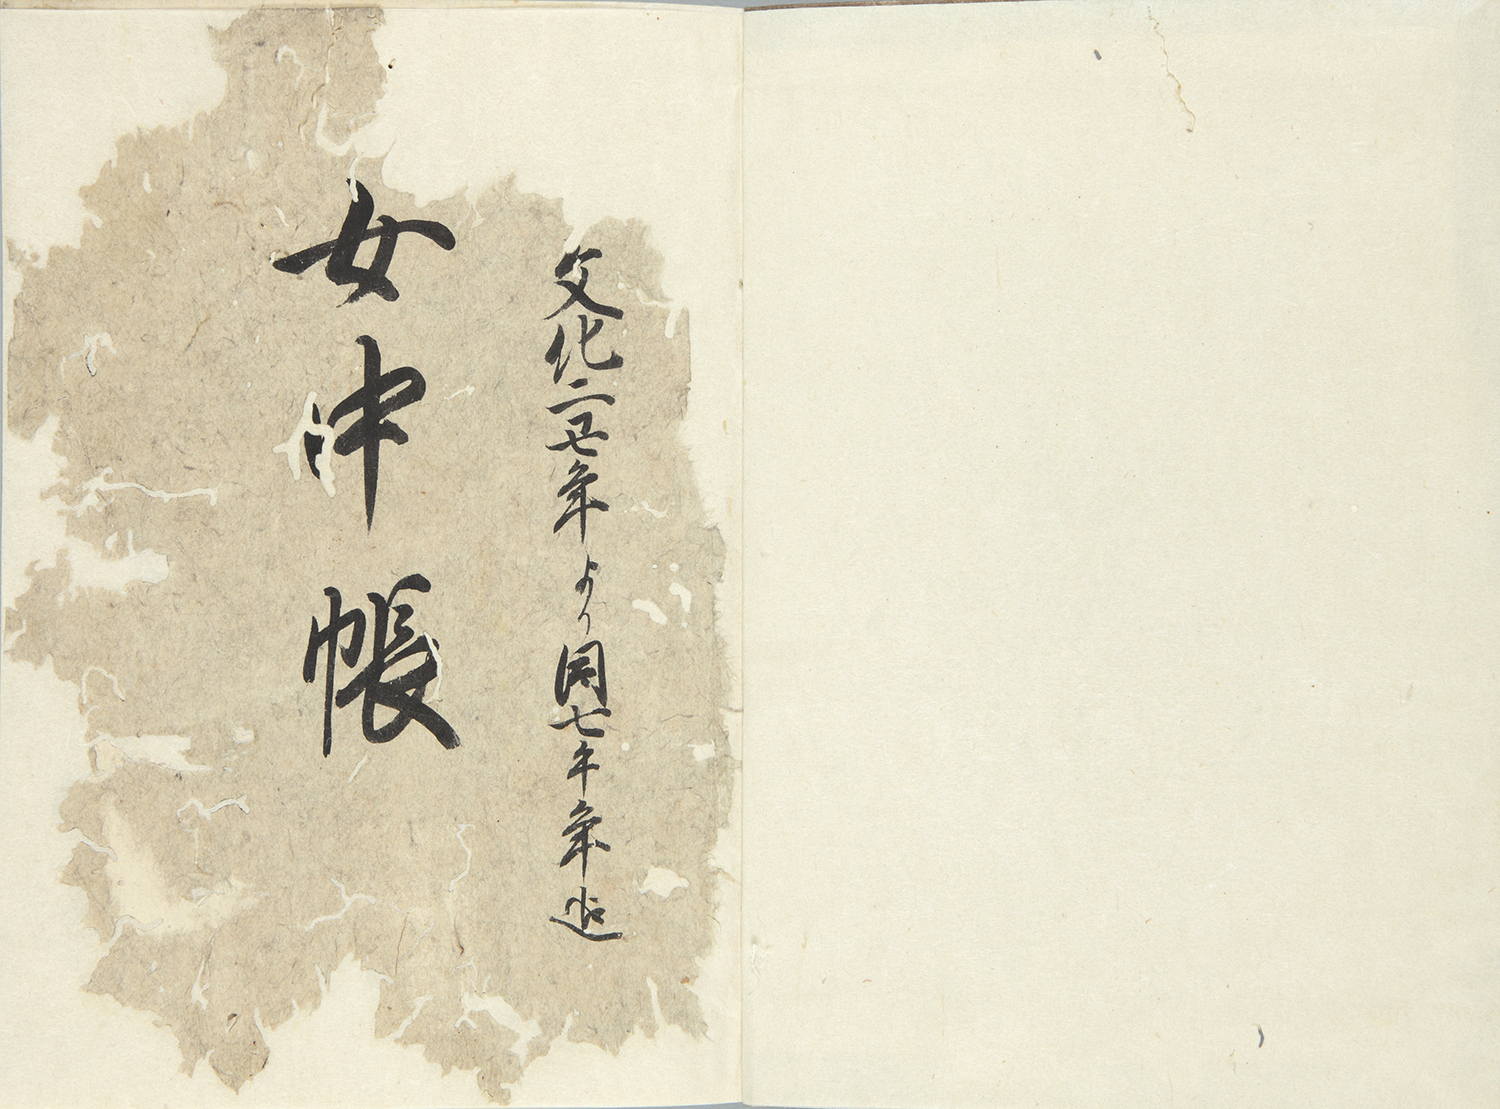 文化二丑年より同七午年迄
女中帳